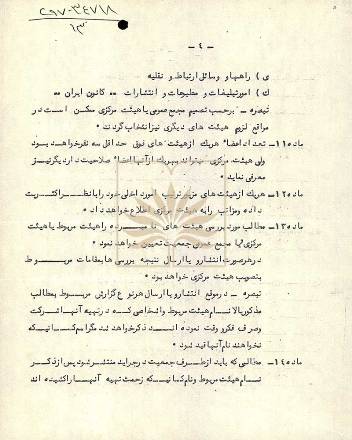 ۲۹۷-۳۴۷۱۸
۱۳
- ۴ -
ی ) راهها و وسائل ارتباط و نقلیه
ك ) امور تبلیغات و مطبوعات و انتشارات " کانون ایران "
تبصره – بر حسب تصمیم مجمع عمومی یا هیئت مرکزی ممکن است در
مواقع لزوم هیئت های دیگری نیز انتخاب گردند
ماده ۱۱ – تعداد اعضاء هریك از هیئت های فوق حداقل سه نفر خواهد بود
ولی هیئت مرکزی میتواند بهریك از آنها اعضاء صلاحیت دار دیگر نیز
معرفی نماید
ماده ۱۲ – هریك از هیئت های مزبور ترتیب امور داخلی خود را با نظر اکثریت
داده و مراتب را به هیئت مرکزی اطلاع خواهد داد
ماده ۱۳ – مطالب مورد بررسی هیئت های را هیئت مربوط یا هیئت
مرکزی یا مجمع عمومی جمعیت تعیین خواهد نمود
در هر صورت انتشار و یا ارسال نتیجه بررسی ها بمقامات مربوط
بتصویب هیئت مرکزی خواهد بود
تبصره – در موقع انتشار و یا ارسال هر نوع گزارش مربوط بمطالب
مذکور بالا نام هیئت مربوط و اشخاصی که در تهیه آنها شرکت
و صرف فکر و وقت نموده اند ذکر خواهد شد مگر اسم کسانیکه
نخواهند نام آنها قید شود
ماده ۱۴ – مطالبی که باید از طرف جمعیت در جراید منتشر شود پس از ذکر
نام هیئت مربوط و نام کسانیکه زحمت تهیه آنها را کشیده اند